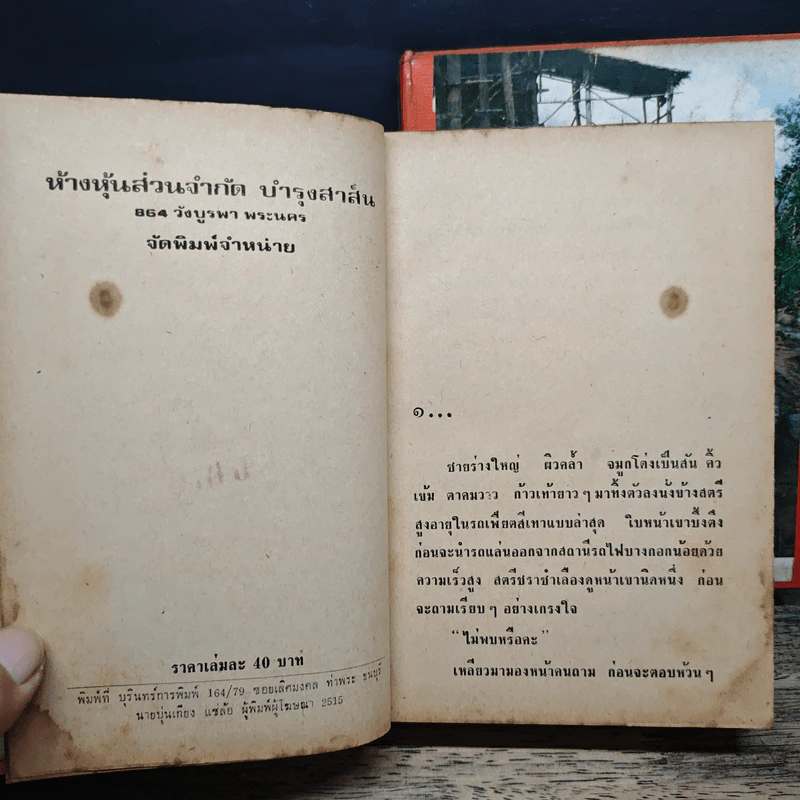 ห้างหุ้นส่วนจำกัด บำรุงสาส์น
864 วังบูรพา พระนคร
จัดพิมพ์จำหน่าย
ราคาเล่มละ 40 บาท
พิมพ์ที่ บุรินทร์การพิมพ์ 164/79 ซอยเลิศมงคล ท่าพระ ธนบุรี
นายบุ่นเกียง แซ่ล้อ ผู้พิมพ์ผู้โฆษณา 2515
๑...
ชายร่างใหญ่ ผิวคล้ำ จมูกโด่งเป็นสัน คิ้ว
เข้ม ตาคมวาว ก้าวเท้ายาว ๆ มาทิ้งตัวลงนั่งข้างสตรี
สูงอายุในรถเฟียตสีเทาแบบล่าสุด ใบหน้าเขาบึ้งตึง
ก่อนจะนำรถแล่นออกจากสถานีรถไฟบางกอกน้อยด้วย
ความเร็วสูง สตรีชราชำเลืองดูหน้าเขานิดหนึ่ง ก่อน
จะถามเรียบ ๆ อย่างเกรงใจ
“ไม่พบหรือคะ”
เหลียวมามองหน้าคนถาม ก่อนจะตอบห้วน ๆ